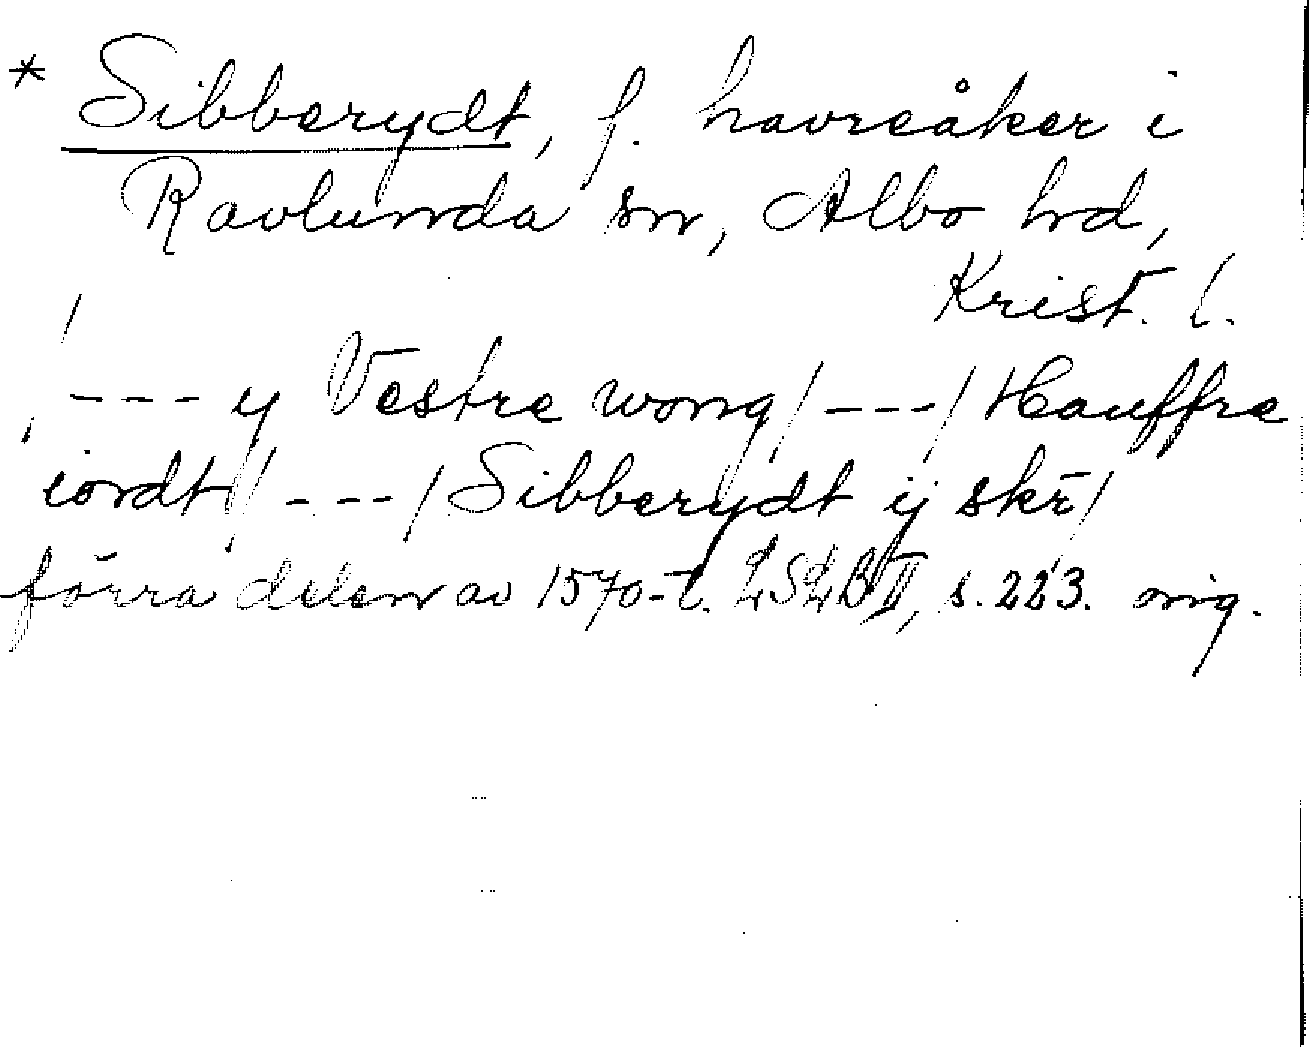 * Sibberydt, f. havreåker i
Ravlunda sn, Albo hd,
Krist. l.
/--- y Vestre wong/---/Hauffre
iordt/---/Sibberydt ij skr/
förra delen av 1570-t. LSLB II, s. 223. orig.